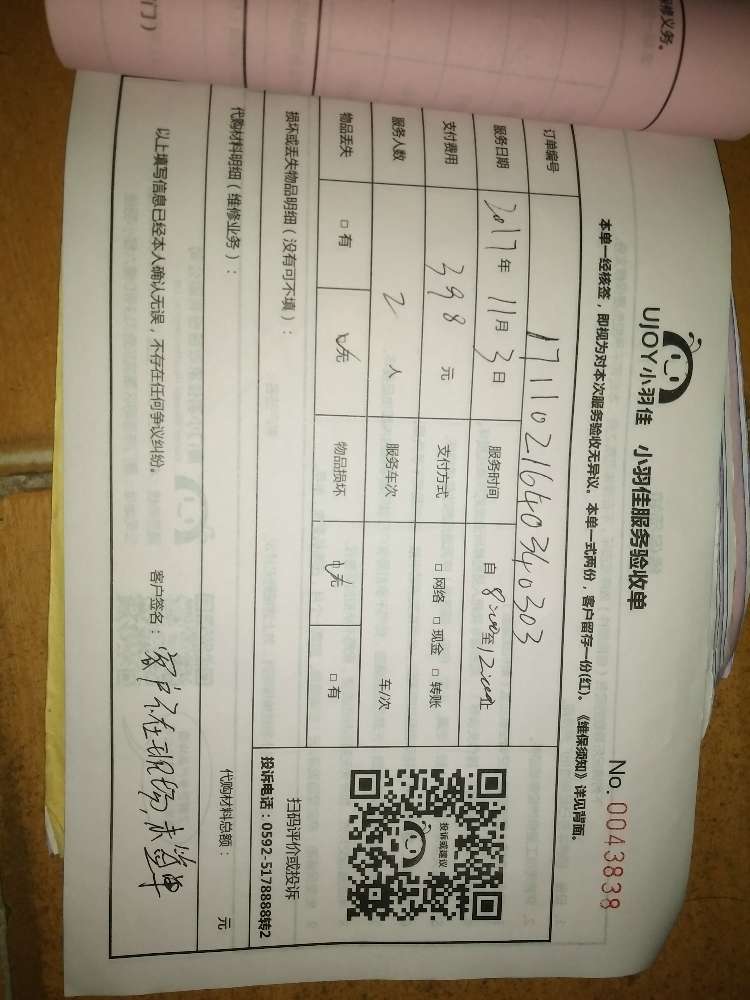 修义务。
门）
UJOY小羽佳 小羽佳服务验收单
No. 0043838
本单一经核签，即视为对本次服务验收无异议。本单一式两份，客户留存一份(红)。《维保须知》详见背面。
订单编号 1711021640340303
服务日期 2017年 11月 3日 服务时间 自 8:00至12:00止
支付费用 398 元 支付方式 □ 网络 □ 现金 □ 转账
服务人数 2 人 服务车次 车/次
物品丢失 □ 有 □ 无 物品损坏 □ 无 □ 有
投诉或建议
扫码评价或投诉
投诉电话：0592-5178888转2
损坏或丢失物品明细（没有可不填）：
代购材料明细（维修业务）： 代购材料总额： 元
以上填写信息已经本人确认无误，不存在任何争议纠纷。 客户签名：客户不在现场，未签单